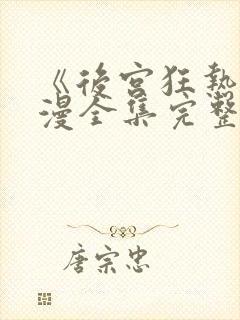 《後宮狂熱
漫全集完整
唐宗忠